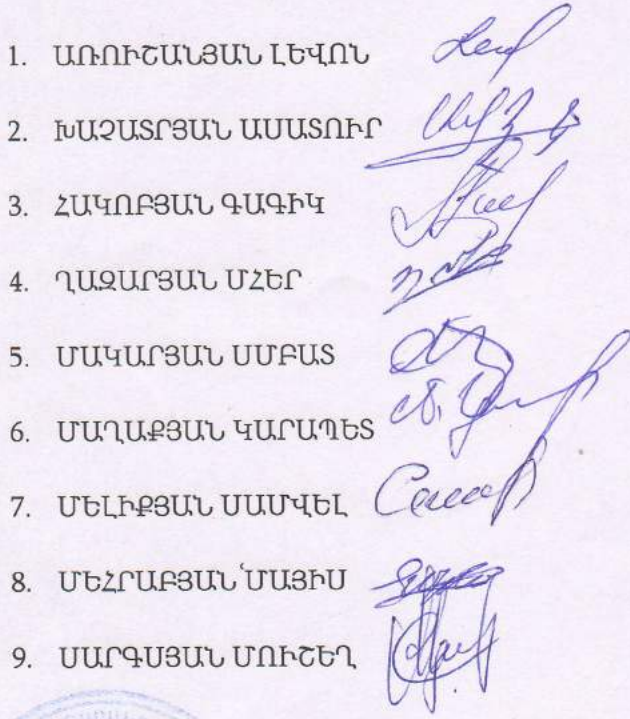 1. ԱՌՈՒՇԱՆՅԱՆ ԼԵՎՈՆ
2. ԽԱՉԱՏՐՅԱՆ ԱՍԱՏՈՒՐ
3. ՀԱԿՈԲՅԱՆ ԳԱԳԻԿ
4. ՂԱԶԱՐՅԱՆ ՄՀԵՐ
5. ՄԱԿԱՐՅԱՆ ՍՄԲԱՏ
6. ՄԱՂԱՔՅԱՆ ԿԱՐԱՊԵՏ
7. ՄԵԼԻՔՅԱՆ ՍԱՄՎԵԼ
8. ՄԵՀՐԱԲՅԱՆ ՄԱՅԻՍ
9. ՍԱՐԳՍՅԱՆ ՄՈՒՇԵՂ